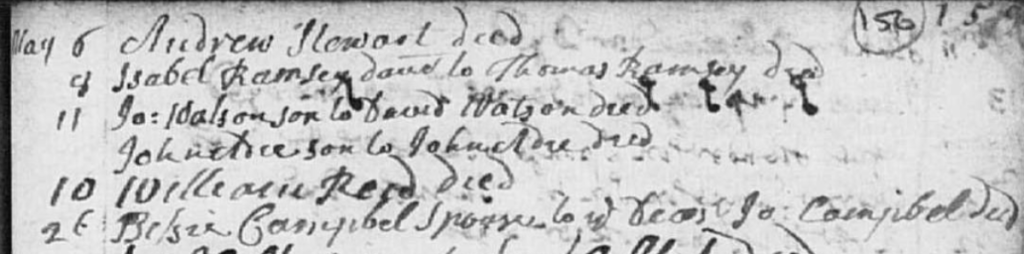 May 6 Andrew Stewart died
9 Isabel Ramsey daur to Thomas Ramsey died
11 Jo: Watson son to David Watson died
John son to John died
10 William Reid died
26 Bessie Campbel Spouse to Jo: Campbel died
150